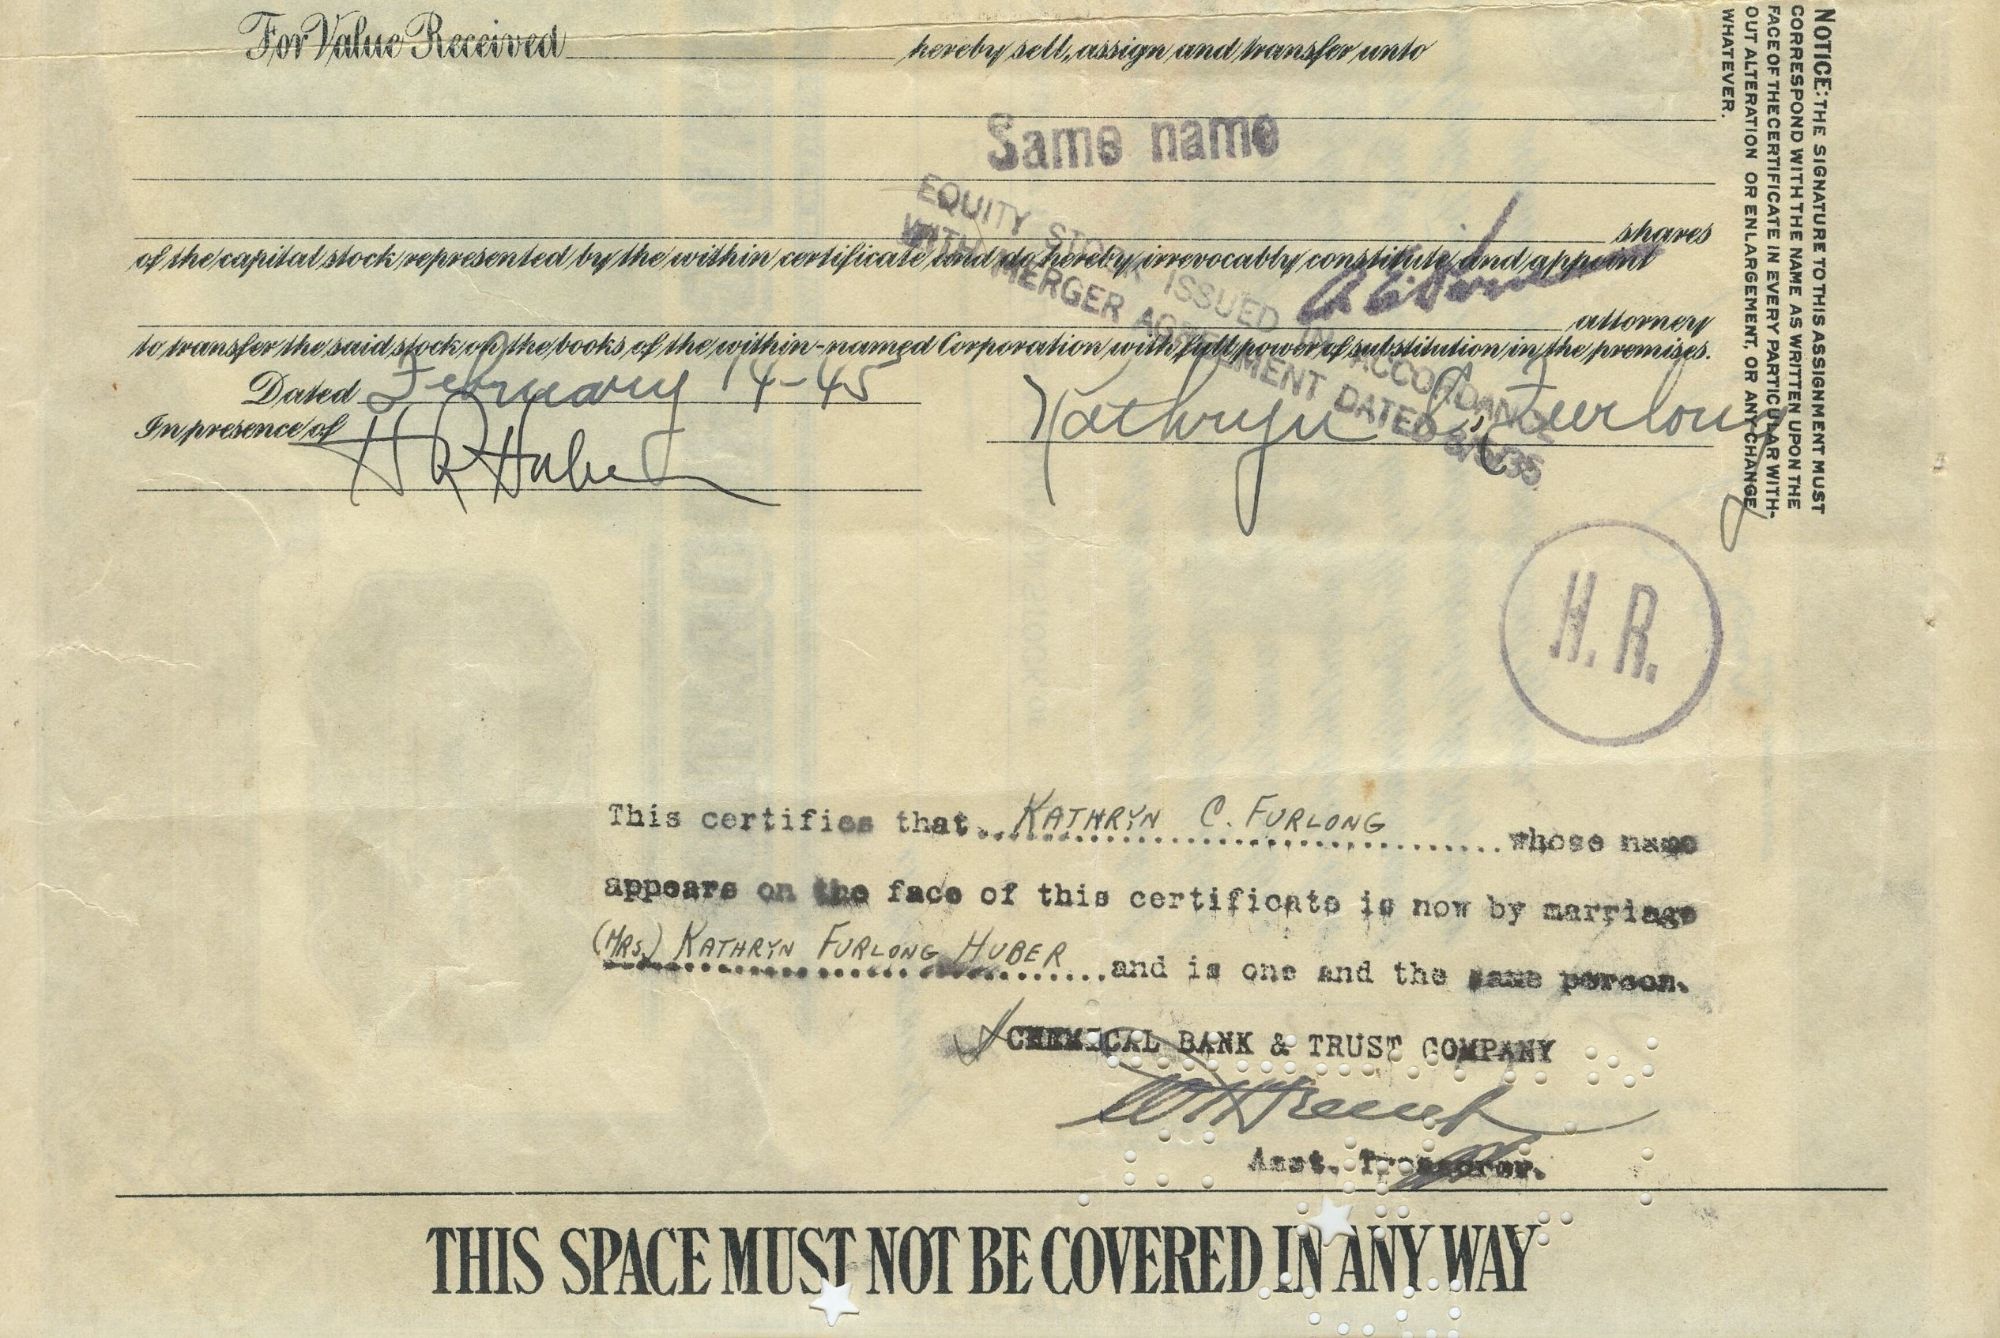 For Value Received hereby sell, assign and transfer unto
Same name
shares
of the capital stock represented by the within certificate and do hereby irrevocably constitute and appoint
EQUITY STOCK ISSUED IN ACCORDANCE
WITH MERGER AGREEMENT DATED
attorney
to transfer the said stock on the books of the within-named Corporation with full power of substitution in the premises.
Dated February 14-45
In presence of H R Huber
Kathryn C. Furlong
NOTICE: THE SIGNATURE TO THIS ASSIGNMENT MUST
CORRESPOND WITH THE NAME AS WRITTEN UPON THE
FACE OF THE CERTIFICATE IN EVERY PARTICULAR WITH-
OUT ALTERATION OR ENLARGEMENT, OR ANY CHANGE
WHATEVER.
H. R.
This certifies that KATHRYN C. FURLONG whose name
appears on the face of this certificate is now by marriage
(MRS.) KATHRYN FURLONG HUBER and is one and the same person.
CHEMICAL BANK & TRUST COMPANY
Asst. Treasurer.
THIS SPACE MUST NOT BE COVERED IN ANY WAY